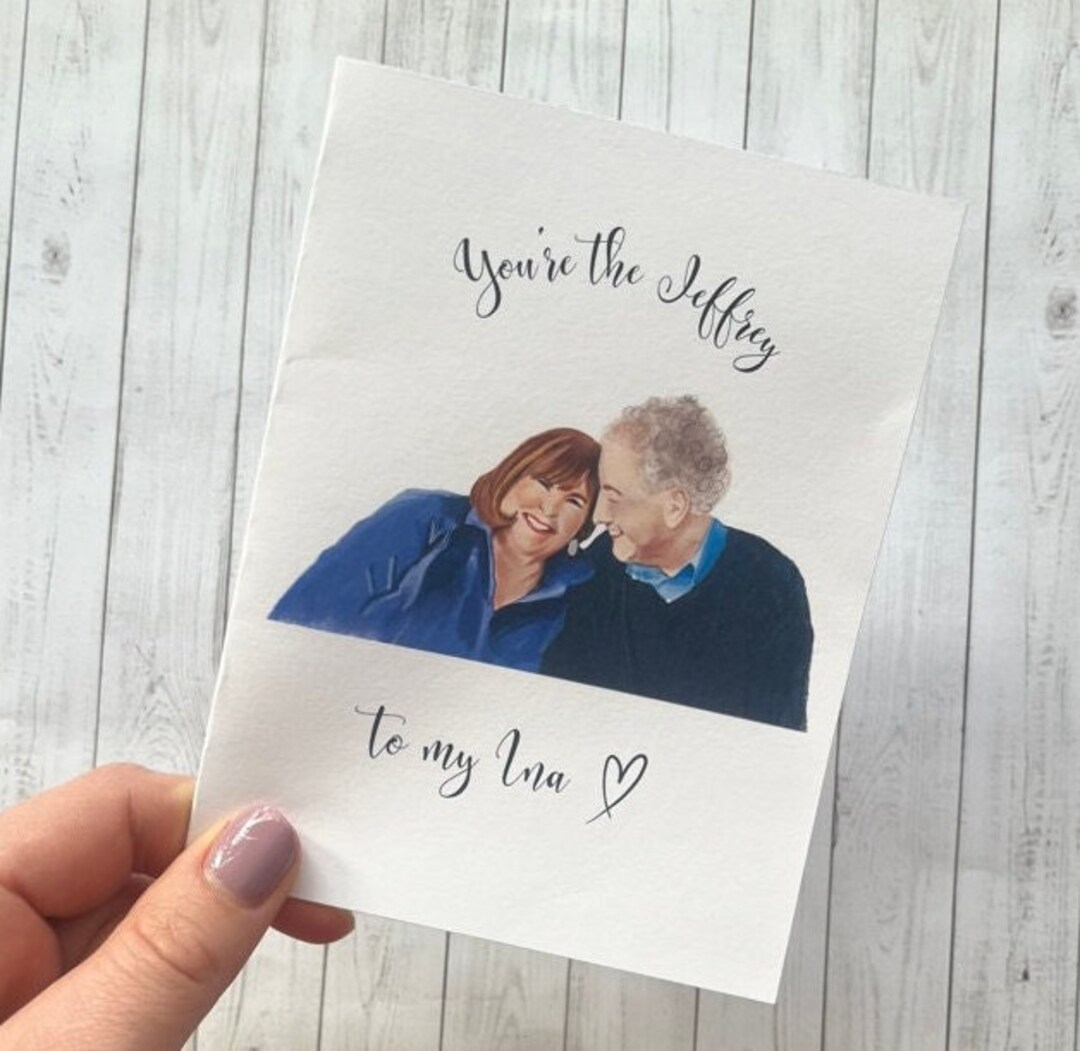 You're the Jeffrey
to my Ina